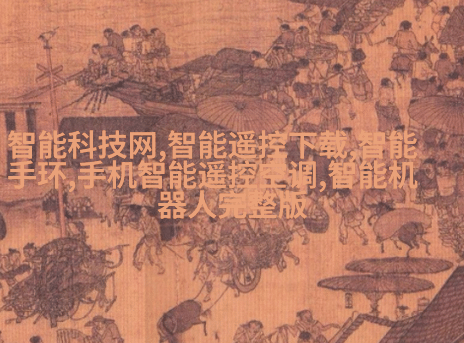 智能科技网,智能遥控下载,智能
手环,手机智能遥控空调,智能机
器人完整版